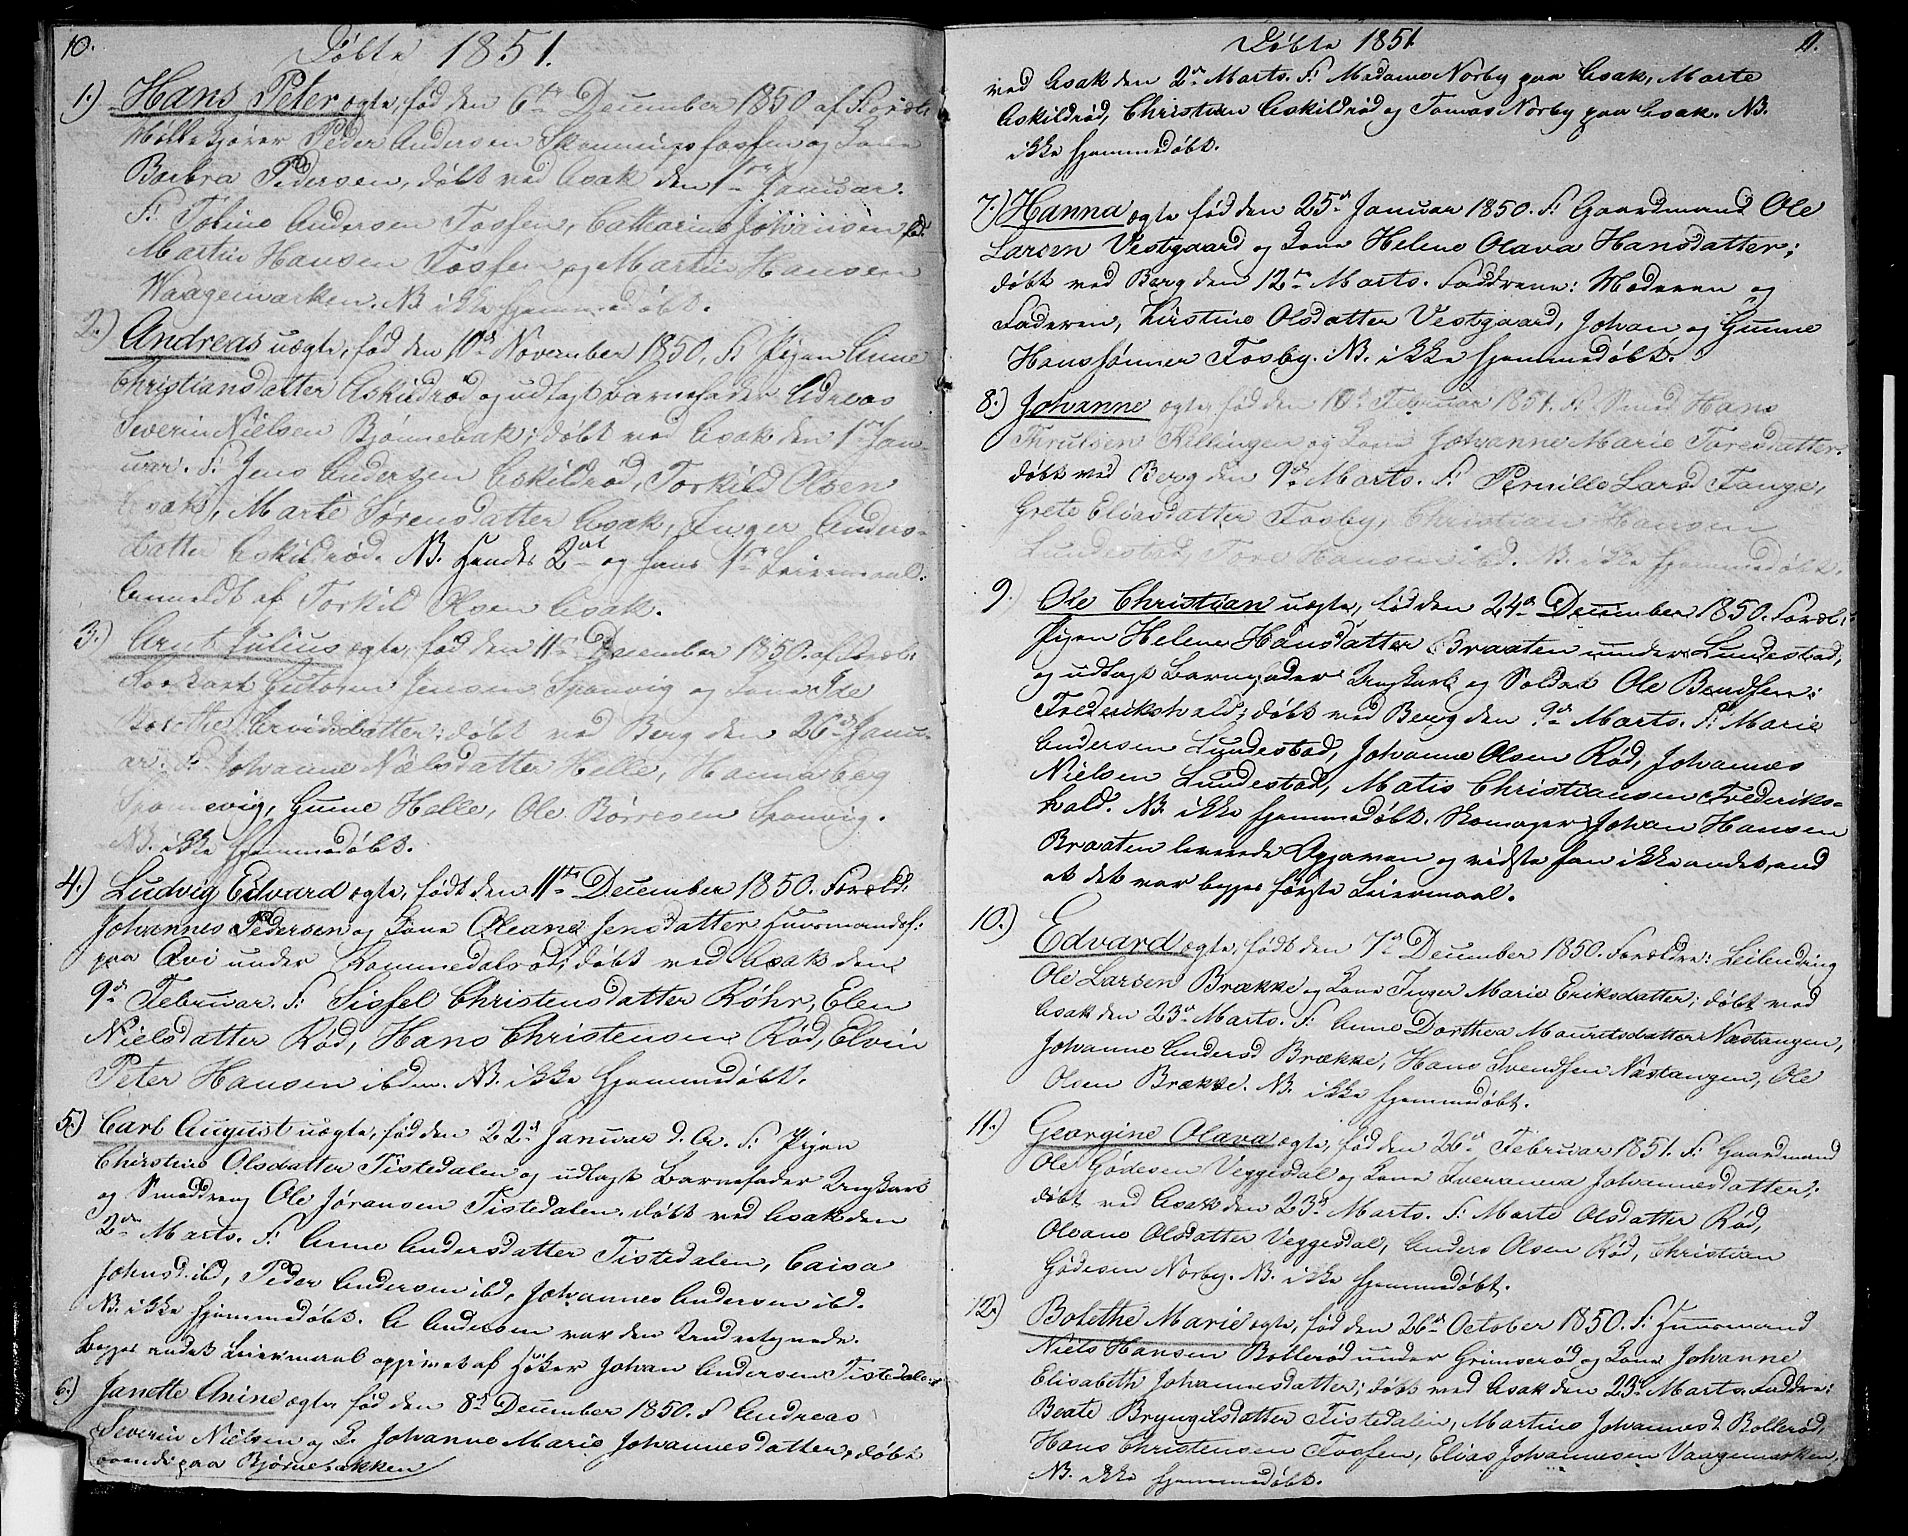 10.
Döbte 1851.
1.) Hans Peter ægte, föd den 6te December 1850 af Foræl:
Möllekjörer Peder Andersen Skonningsfossen og Kone
Barbra Pedersen, döbt ved Asak den 1ste Januar.
F: Toline Andersen Fossen, Catharine Johansen ibd.
Martin Hansen Fossen og Martin Hansen
Waagemarken. NB. ikke hjemmedöbt.
2.) Andreas uægte, föd den 10de November 1850. F: Pigen Anne
Christiansdatter Askildröd og udlagt Barnefader Adreas
Severin Nielsen Björnebak; döbt ved Asak den 1ste Jan-
uar. F: Jens Andersen Askildröd, Torkild Olsen
Asak, Marte Sörensdatter Asak, Inger Anders-
datter Askildröd. NB. Hendes 2det og hans 1ste Leiermaal.
Anmeldt af Torkild Olsen Asak.
3.) Arnt Julius ægte, föd den 11te December 1850. af Foræl:
Jensen Sponvig og Kone
Arvidsdatter; döbt ved Berg den 26de Janu-
ar. F: Johanne Nielsdatter Helle, Hanna Berg
Sponevig, Gunne Helle, Ole Börresen Sponvig.
NB. ikke hjemmedöbt.
4.) Ludvig Edvard ægte, födt den 11te December 1850. Foræld:
Johannes Pedersen og Kone Oleane Jensdatter Huusmandsf:
paa Qvi under döbt ved Asak den
9de Februar. F: Sissel Christensdatter Röhr, Elen
Nielsdatter Röd, Hans Christensen Röd, Elvin
Peter Hansen ibden. NB. ikke hjemmedöbt.
5.) Carl August uægte, föd den 22de Januar d. A. F: Pigen
Christine Olsdatter Tistedalen og udlagte Barnefader Ungkarl
og Smeddreng Ole Jöransen Tistedalen. döbt ved Asak den
2den Marts. F: Anne Andersdatter Tistedalen, Caisa
Johnsd. ibd, Peder Andersen ibd, Johannes Andersen ibd.
NB. ikke hjemmedöbt. A Andersen var den Undertegnede.
Begges andet Leiermaal opgivet af Höker Johan Andersen Tistedalen
6.) Janette Anine ægte föd den 8de December 1850. F Andreas
Severin Nielsen og K. Johanne Marie Johannesdatter, döbt
paa Björnebakken
Döbte 1851
11.
ved Asak den 2den Marts. F: Madame Norby paa Asak, Marte
Askildröd, Christian Askildröd og Tomas Norby paa Asak. NB.
ikke hjemmedöbt.
7.) Hanna ægte föd den 25de Januar 1850. F: Gaardmand Ole
Larsen Vestgaard og Kone Helene Olava Hansdatter;
döbt ved Berg den 12te Marts. Faddrene: Moderen og
Faderen, Kirstine Olsdatter Vestgaard, Johan og Gunne
Hanssönner Fosby. NB. ikke hjemmedöbt.
8.) Johanne ægte, föd den 18de Februar 1851. F: Smed Hans
Thrulsen Killingen og Kone Johanne Marie Toresdatter.
döbt ved Berg den 9de Marts. F: Pernille Larsd Tange,
Grete Eliasdatter Fosby, Christian Hansen
Lundestad, Tore Hansen ibd. NB. ikke hjemmedöbt.
9. Ole Christian uægte, föd den 24de December 1850. Foræl:
Pigen Helene Hansdatter Braaten under Lundestad,
og udlagt Barnefader Ungkarl og Soldat Ole Bendsen
Frederikshald; döbt ved Berg den 9de Marts. F: Marie
Andersen Lundestad, Johanne Olsen Röd, Johannes
Nielsen Lundestad, Matis Christiansen Frederiks-
hald. NB. ikke hjemmedöbt. Skomager Johan Hansen
Braaten leverede Opgaven og vidste han ikke andet, end
at det var begges förste Leiermaal.
10.) Edvard ægte, födt den 7de December 1850. Forældre: Leilending
Ole Larsen Brække og Kone Inger Marie Eriksdatter; döbt ved
Asak den 23de Marts. F: Anne Dorthea Mouritsdatter Næstangen,
Johanne Andersd Brække, Hans Svendsen Næstangen, Ole
Olsen Brække. NB. ikke hjemmedöbt.
11.) Georgine Olava ægte, föd den 26de Februar 1851. F: Gaardmand
Ole Gödesen Veggesdal og Kone Iveranna Johannesdatter;
döbt ved Asak den 23de Marts. F: Marte Olsdatter Röd,
Oleane Olsdatter Veggesdal, Anders Olsen Röd, Christian
Gödesen Norby. NB. ikke hjemmedöbt.
12.) Bolethe Marie ægte, föd den 26de October 1850. F: Huusmand
Niels Hansen Bolleröd under Grimseröd og Kone Johanne
Elisabeth Johannesdatter; döbt ved Asak den 23de Marts. Faddre:
Beate Bryngelsdatter Tistedalen, Martine Johannesd Bolleröd,
Hans Christensen Fossen, Elias Johannesen Vaagemarken,
NB. ikke hjemmedöbt.